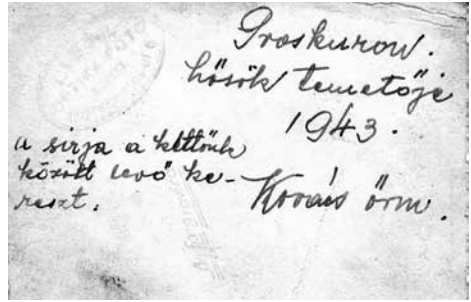 Proskurow.
hősök temetője
1943.
a sirja a kettőnk
között levő ke-
reszt.
Kovács őrm.